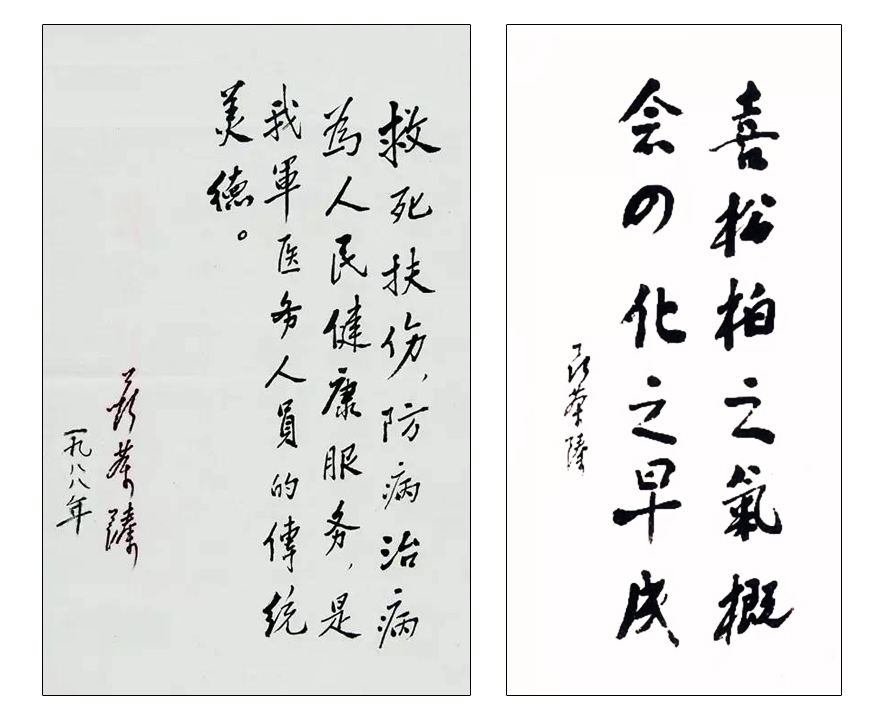 救死扶伤，防病治病
為人民健康服务，是
我軍医务人員的傳統
美德。
聂荣臻
一九八八年
喜松柏之氣概
会四化之早成
聂荣臻